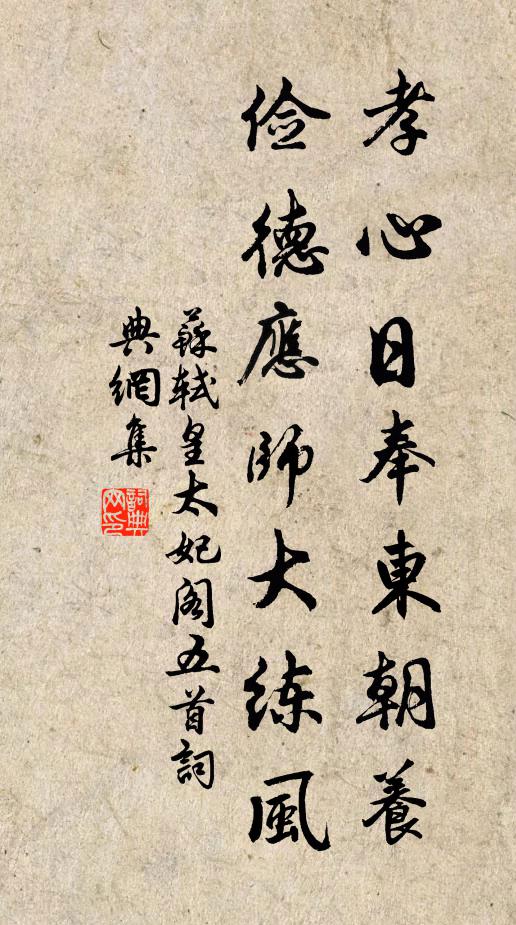 孝心日奉東朝養
儉德應師大練風
蘇軾皇太妃閣五首詞
典網集
詞典
网印